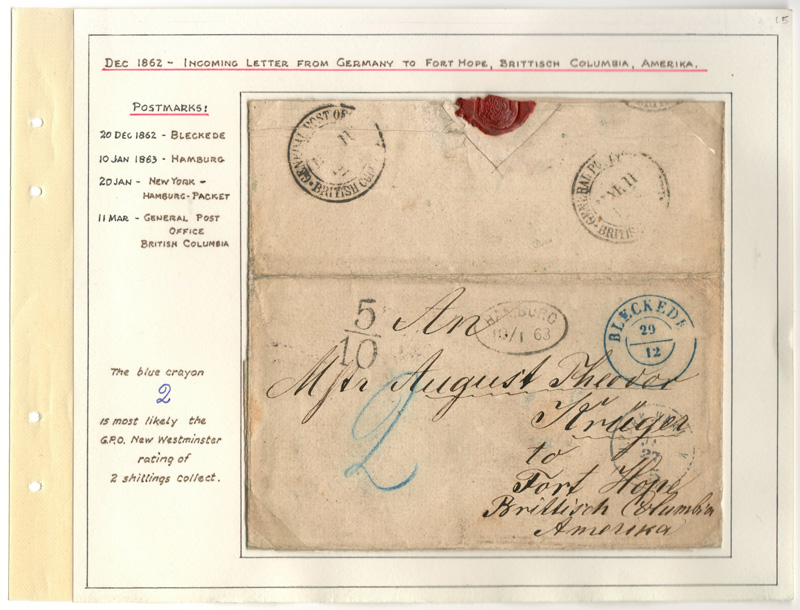 15
DEC 1862 - INCOMING LETTER FROM GERMANY TO FORT HOPE, BRITTISCH COLUMBIA, AMERIKA.
POSTMARKS:
20 DEC 1862 - BLECKEDE
10 JAN 1863 - HAMBURG
20 JAN - NEW YORK -
HAMBURG-PACKET
11 MAR - GENERAL POST
OFFICE
BRITISH COLUMBIA
The blue crayon
2
is most likely the
G.P.O. New Westminster
rating of
2 shillings collect.
GENERAL POST OF
11
BRITISH COL
GENERAL PO
11
BRITIS
5
10
HAMBURG
10/1 63
BLECKEDE
29
12
An
Mstr August Theodor
Krüger
to
Fort Hope
Brittisch Columbia
Amerika
2